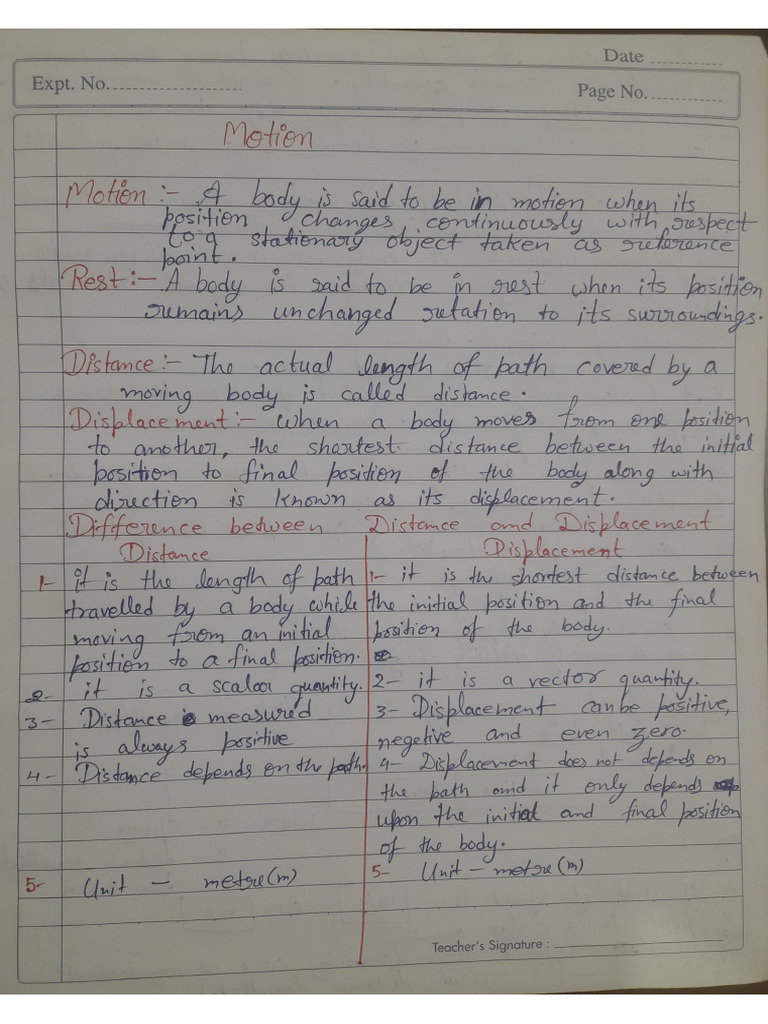 Date ............
Expt. No. ........................
Page No. .............
Motion
Motion :- A body is said to be in motion when its
position changes continuously with respect
to a stationary object taken as reference
point.
Rest :- A body is said to be in rest when its position
remains unchanged retation to its surroundings.
Distance :- The actual length of path covered by a
moving body is called distance.
Displacement :- When a body moves from one position
to another, the shortest distance between the initial
position to final position of the body along with
direction is known as its displacement.
Difference between Distance and Displacement
Distance
1- it is the length of path
travelled by a body while
moving from an initial
position to a final position.
2- it is a scalar quantity.
3- Distance measured
is always positive
4- Distance depends on the path.
5- Unit - metre(m)
Displacement
1- it is the shortest distance between
the initial position and the final
position of the body.
2- it is a vector quantity.
3- Displacement can be positive,
negetive and even zero.
4- Displacement does not depends on
the path and it only depends
upon the initial and final position
of the body.
5- Unit - metre(m)
Teacher's Signature : ____________